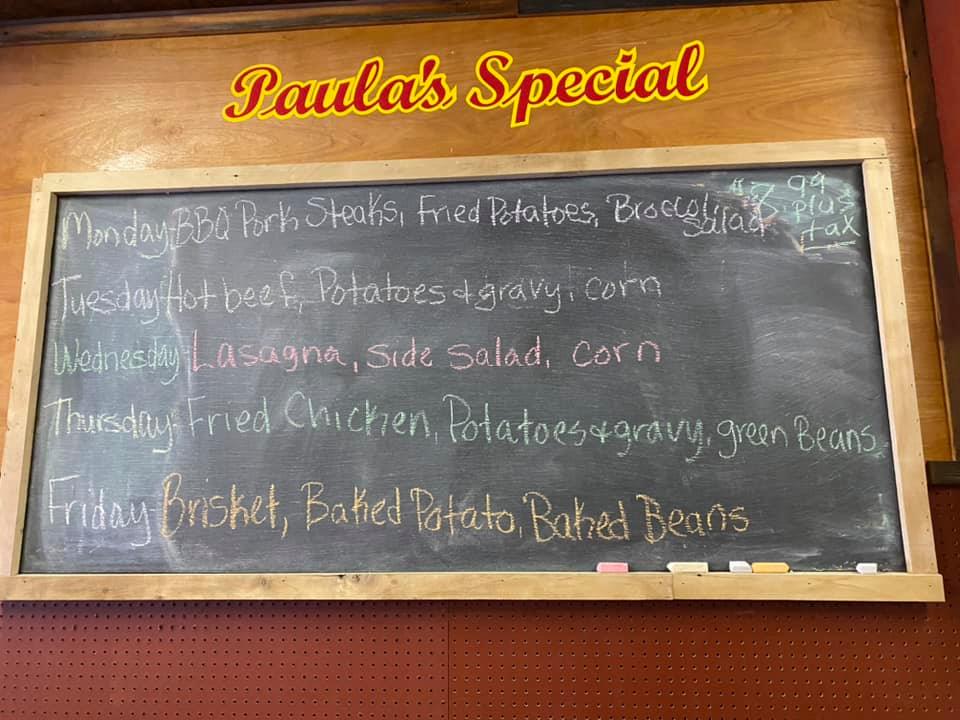 Paula's Special
Monday-BBQ Pork Steaks, Fried Potatoes, Broccoli Salad
$8.99 plus tax
Tuesday Hot beef, Potatoes & gravy, corn
Wednesday-Lasagna, side salad, corn
Thursday-Fried Chicken, Potatoes & gravy, green Beans
Friday-Brisket, Baked Potato, Baked Beans